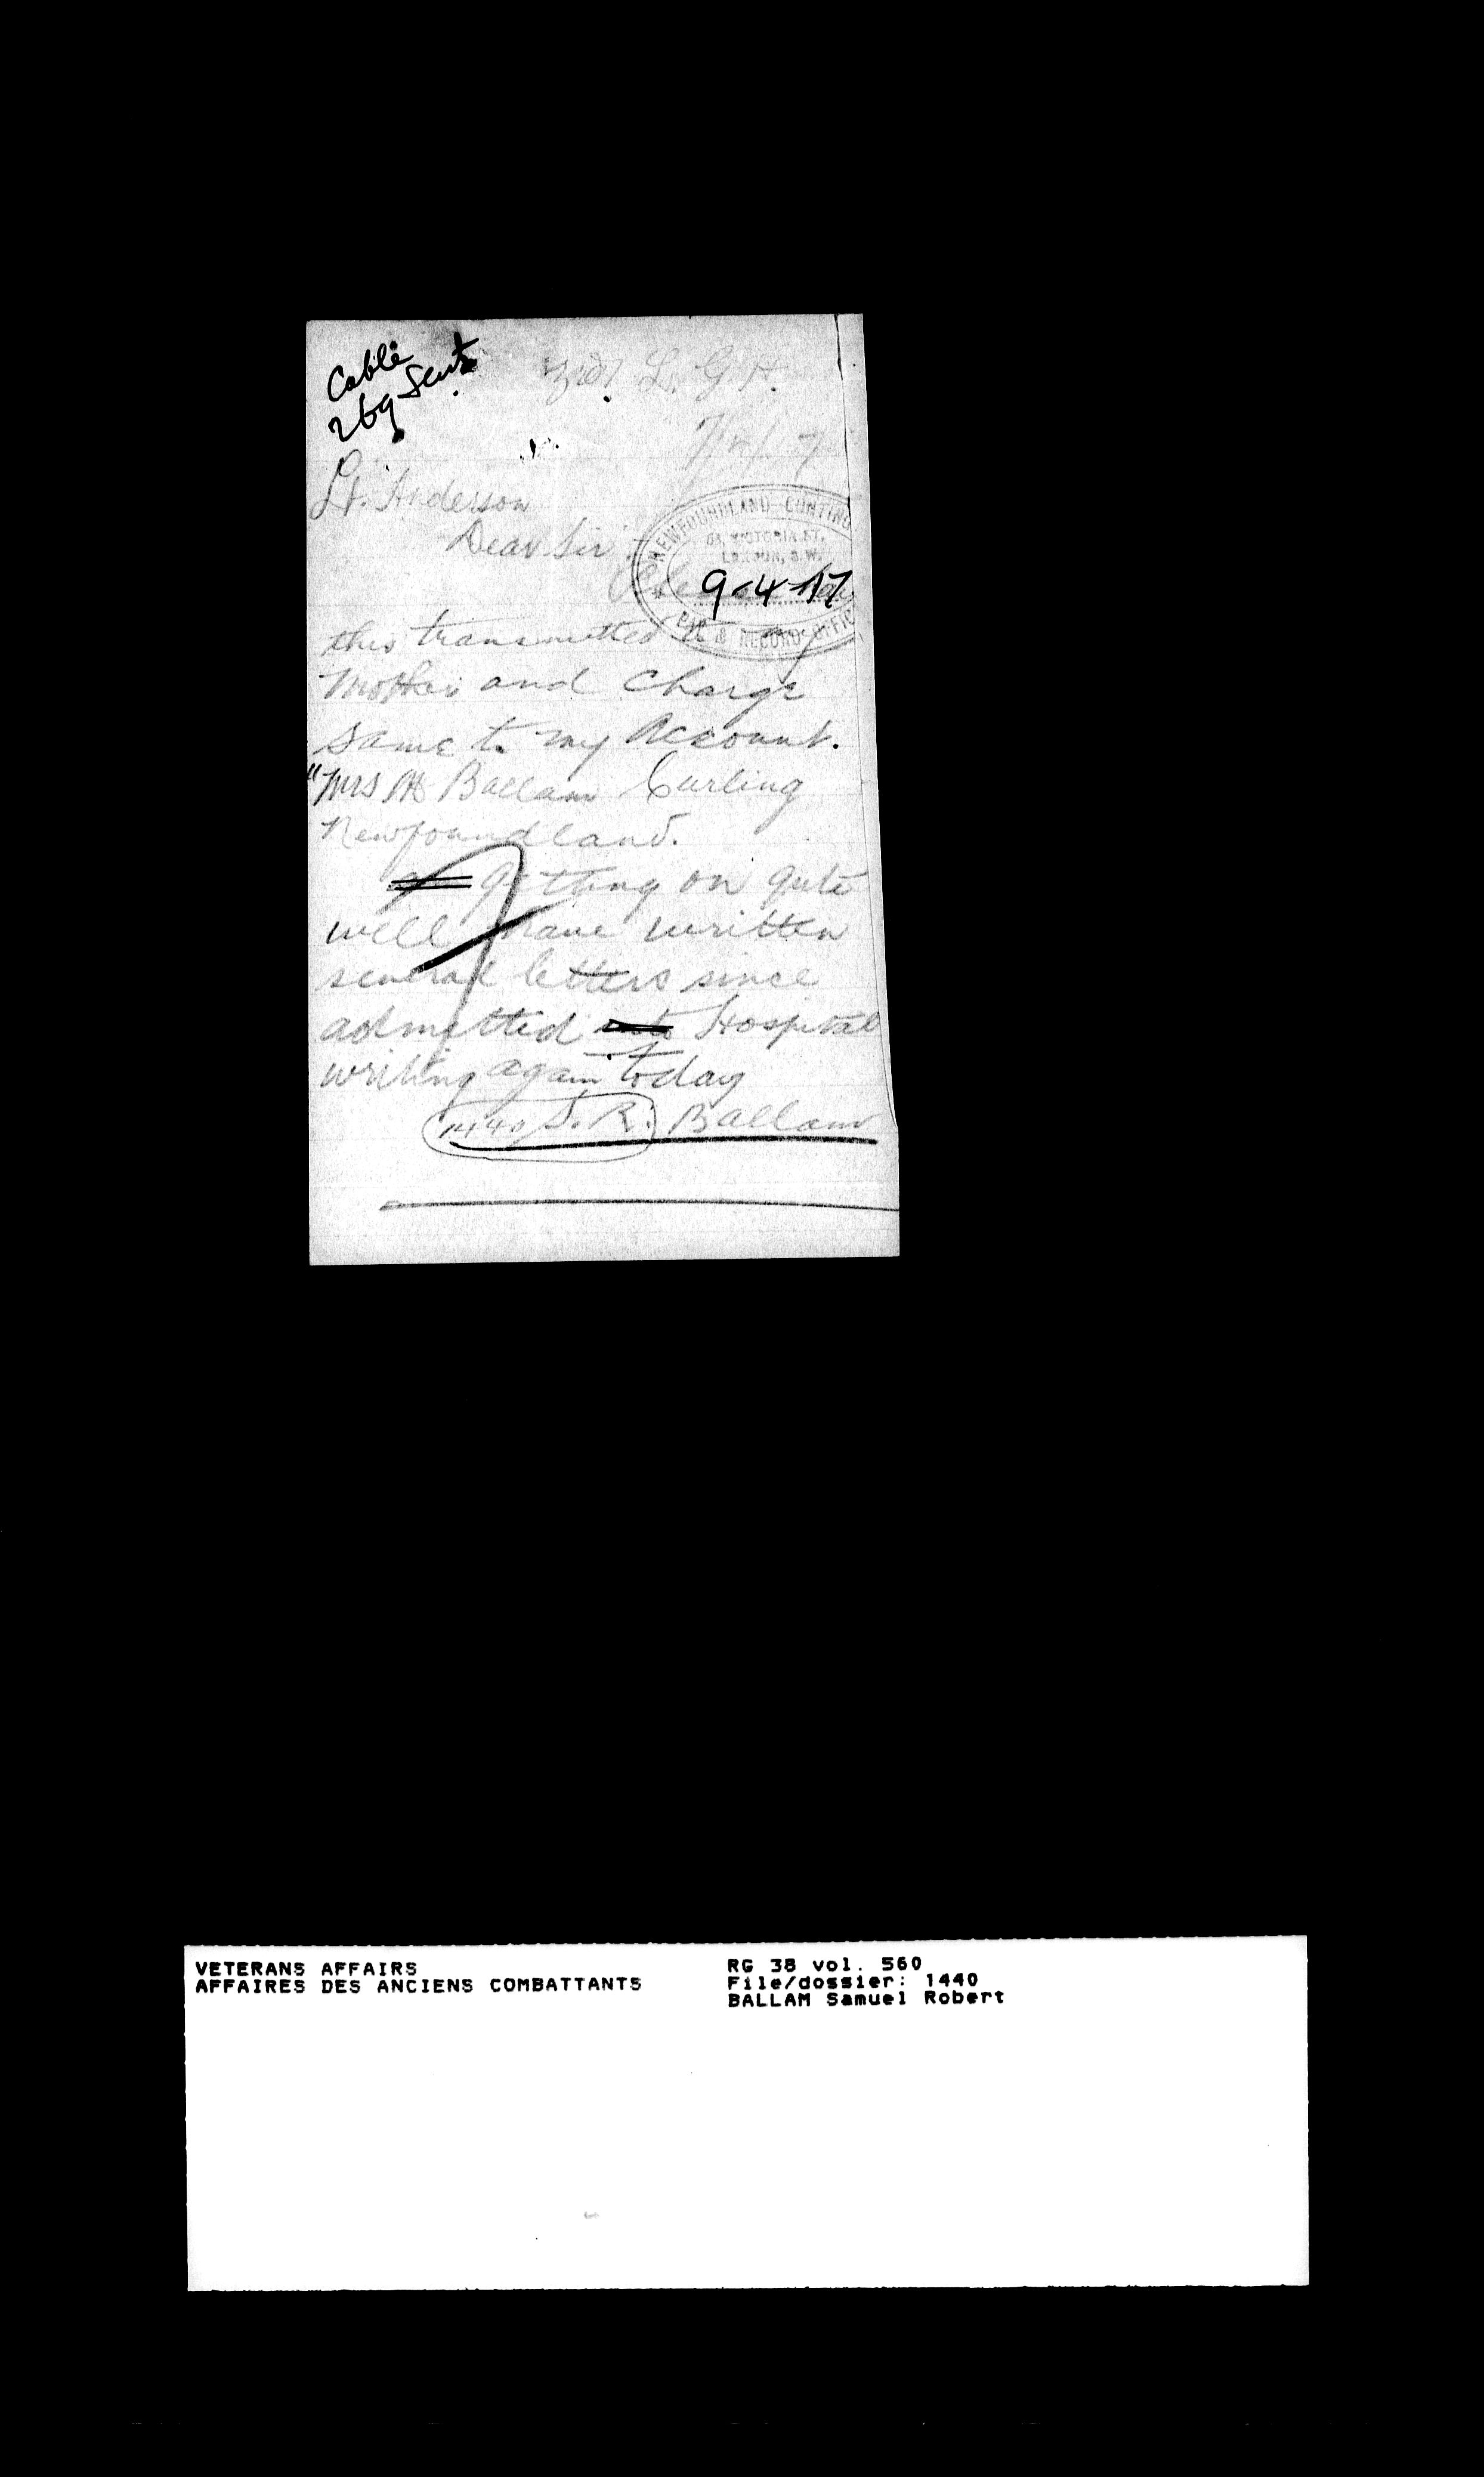 Cable
269 Sent
3rd L. G. H.
Lt. Anderson
Dear Sir :-
NEWFOUNDLAND CONTING
VICTORIA ST.
LONDON, S.W.
9-4-17
PAY & RECORD OFFIC
Please
this transmitted to my
Mother and Charge
same to my Account.
"Mrs Ballam Curling
Newfoundland.
getting on quite
well have written
several letters since
admitted into Hospital
writing again today
1440 S. R. Ballam
VETERANS AFFAIRS
AFFAIRES DES ANCIENS COMBATTANTS
RG 38 vol. 560
File/dossier: 1440
BALLAM Samuel Robert